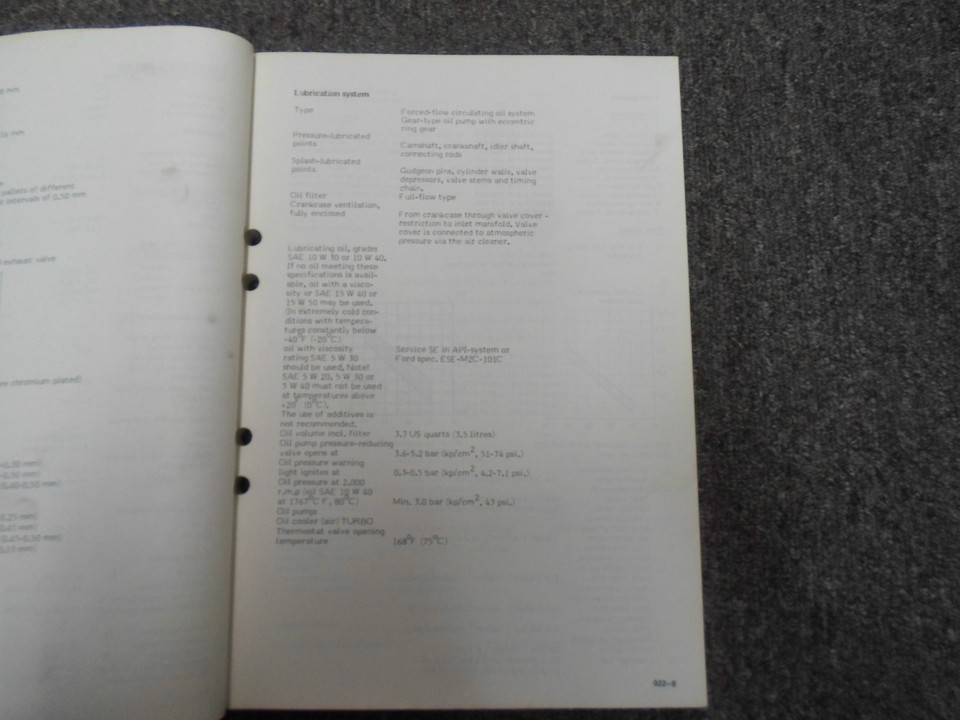 0 mm
mm
pallets of different
intervals of 0.50 mm
exhaust valve
chromium plated)
0.30 mm)
0.50 mm)
(0.40-0.50 mm)
0.25 mm)
mm)
mm)
mm)
Lubrication system
Type
Forced-flow circulating oil system
Gear-type oil pump with eccentric
ring gear
Pressure-lubricated
points
Camshaft, crankshaft, idler shaft,
connecting rods
Splash-lubricated
points
Gudgeon pins, cylinder walls, valve
depressors, valve stems and timing
chain.
Oil filter
Full-flow type
Crankcase ventilation,
fully enclosed
From crankcase through valve cover -
restriction to inlet manifold. Valve
cover is connected to atmospheric
pressure via the air cleaner.
Lubricating oil, grades
SAE 10 W 30 or 10 W 40.
If no oil meeting these
specifications is avail-
able, oil with a visco-
sity or SAE 15 W 40 or
15 W 50 may be used.
(In extremely cold con-
ditions with tempera-
tures constantly below
-40°F (-20°C)
oil with viscosity
rating SAE 5 W 30
should be used. Note!
SAE 5 W 20, 5 W 30 or
5 W 40 must not be used
at temperatures above
+20° (0°C).
The use of additives is
not recommended.
Service SE in API-system or
Ford spec. ESE-M2C-101C
Oil volume incl. filter 3.7 US quarts (3,5 litres)
Oil pump pressure-reducing
valve opens at 3.6-5.2 bar (kp/cm2, 51-74 psi.)
Oil pressure warning
light ignites at 0.3-0.5 bar (kp/cm2, 4.2-7.1 psi.)
Oil pressure at 2,000
r.m.p (g) SAE 10 W 40
at 176?°C F, 80°C) Min. 3.0 bar (kp/cm2, 43 psi.)
Oil pump
Oil cooler (air) TURBO
Thermostat valve opening
temperature 168°F (75°C)
022-8